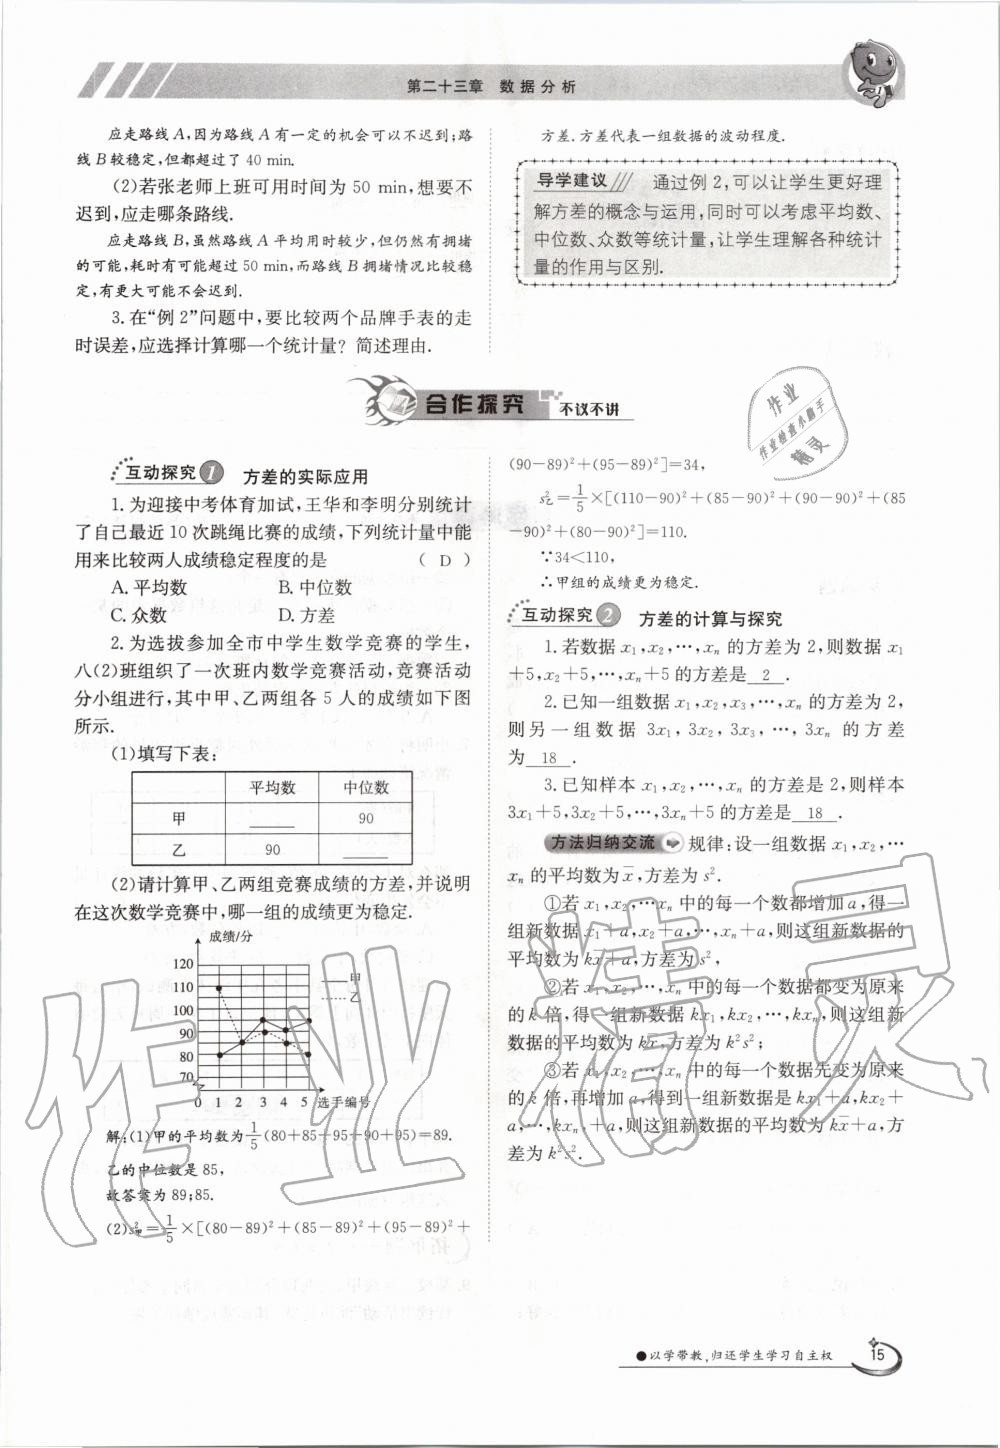 第二十三章 数据分析
应走路线 A,因为路线 A 有一定的机会可以不迟到;路
线 B 较稳定,但都超过了 40 min.
(2)若张老师上班可用时间为 50 min,想要不
迟到,应走哪条路线.
应走路线 B,虽然路线 A 平均用时较少,但仍然有拥堵
的可能,耗时有可能超过 50 min,而路线 B 拥堵情况比较稳
定,有更大可能不会迟到.
3.在“例 2”问题中,要比较两个品牌手表的走
时误差,应选择计算哪一个统计量?简述理由.
方差.方差代表一组数据的波动程度.
导学建议 通过例 2,可以让学生更好理
解方差的概念与运用,同时可以考虑平均数、
中位数、众数等统计量,让学生理解各种统计
量的作用与区别.
合作探究 不议不讲
互动探究 1 方差的实际应用
1.为迎接中考体育加试,王华和李明分别统计
了自己最近 10 次跳绳比赛的成绩,下列统计量中能
用来比较两人成绩稳定程度的是 ( D )
A.平均数 B.中位数
C.众数 D.方差
2.为选拔参加全市中学生数学竞赛的学生,
八(2)班组织了一次班内数学竞赛活动,竞赛活动
分小组进行,其中甲、乙两组各 5 人的成绩如下图
所示.
(1)填写下表:
平均数 中位数
甲 ____ 90
乙 90 ____
(2)请计算甲、乙两组竞赛成绩的方差,并说明
在这次数学竞赛中,哪一组的成绩更为稳定.
成绩/分
120
110
100
90
80
70
甲
乙
0 1 2 3 4 5 选手编号
解:(1)甲的平均数为 1/5(80+85+95+90+95)=89.
乙的中位数是 85,
故答案为 89;85.
(2)s²甲=1/5×[(80-89)²+(85-89)²+(95-89)²+
(90-89)²+(95-89)²]=34,
s²乙=1/5×[(110-90)²+(85-90)²+(90-90)²+(85
-90)²+(80-90)²]=110.
∵34<110,
∴甲组的成绩更为稳定.
互动探究 2 方差的计算与探究
1.若数据 x₁,x₂,…,xₙ 的方差为 2,则数据 x₁
+5,x₂+5,…,xₙ+5 的方差是 2 .
2.已知一组数据 x₁,x₂,x₃,…,xₙ 的方差为 2,
则另一组数据 3x₁,3x₂,3x₃,…,3xₙ 的方差
为 18 .
3.已知样本 x₁,x₂,…,xₙ 的方差是 2,则样本
3x₁+5,3x₂+5,…,3xₙ+5 的方差是 18 .
方法归纳交流 规律:设一组数据 x₁,x₂,…
xₙ 的平均数为 x̄,方差为 s².
①若 x₁,x₂,…xₙ 中的每一个数都增加 a,得一
组新数据 x₁+a,x₂+a,…,xₙ+a,则这组新数据的
平均数为 kx̄+a,方差为 s²,
②若 x₁,x₂,…,xₙ 中的每一个数据都变为原来
的 k 倍,得一组新数据 kx₁,kx₂,…,kxₙ,则这组新
数据的平均数为 kx̄,方差为 k²s²;
③若 x₁,x₂,…,xₙ 中的每一个数据先变为原来
的 k 倍,再增加 a,得到一组新数据是 kx₁+a,kx₂+
a,…,kxₙ+a,则这组新数据的平均数为 kx̄+a,方
差为 k²s².
●以学带教,归还学生学习自主权
15
作业
作业检查小助手
精灵
作业精灵